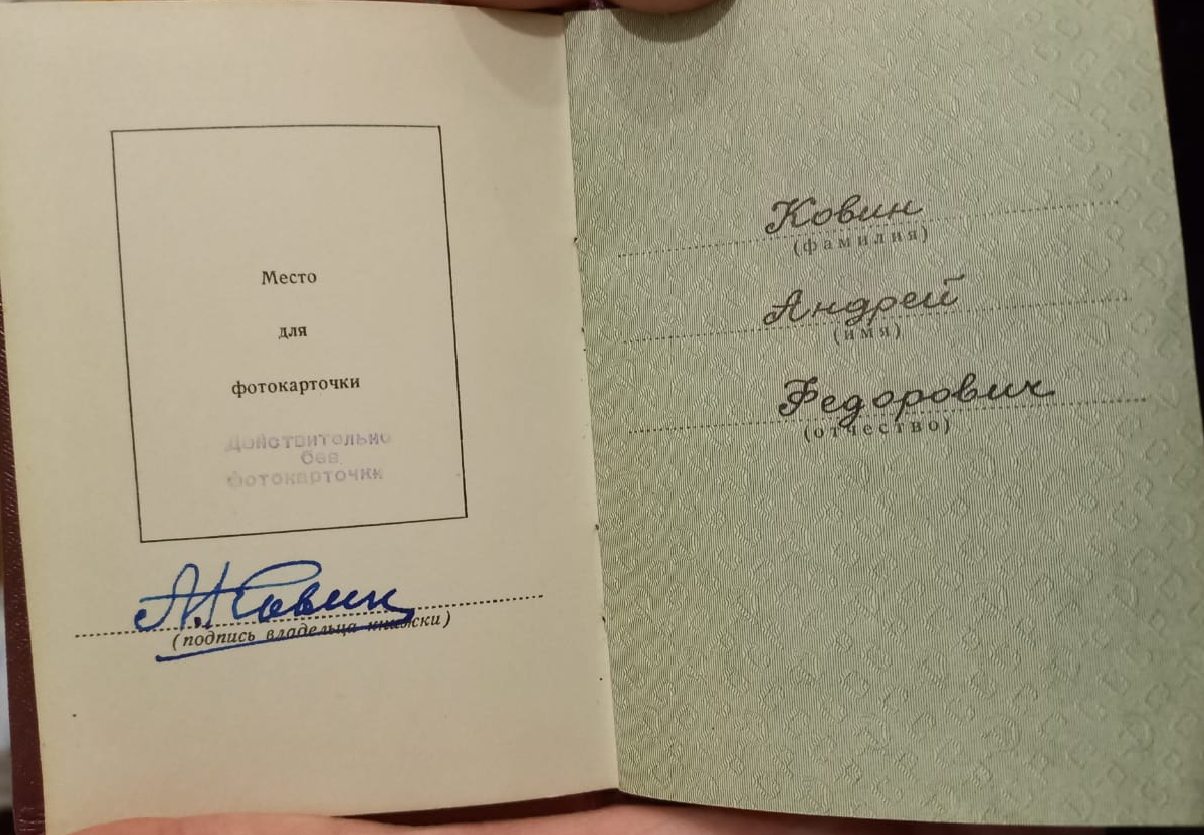 Место
для
фотокарточки
Действительно
без
фотокарточки
А. Ковин
(подпись владельца книжки)
Ковин
(фамилия)
Андрей
(имя)
Федорович
(отчество)